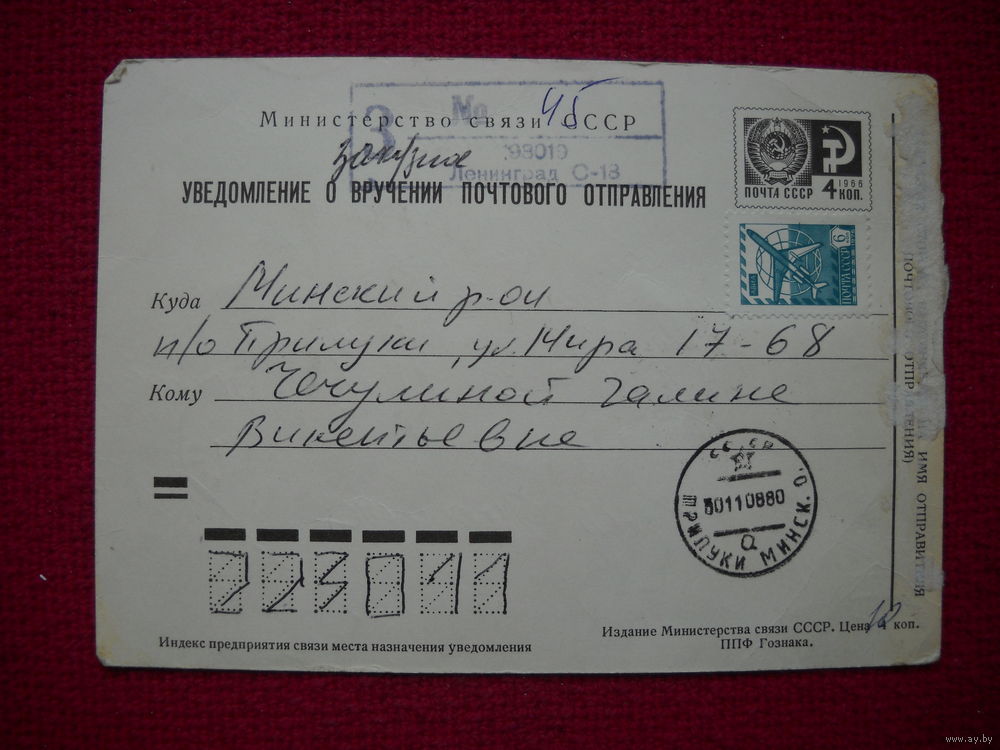 Министерство связи СССР
З № 45
198019
Ленинград С-18
УВЕДОМЛЕНИЕ О ВРУЧЕНИИ ПОЧТОВОГО ОТПРАВЛЕНИЯ
ПОЧТА СССР 4 КОП. 1966
6 ПОЧТА СССР
Куда Минский р-он
п/о Прилуки, ул. Мира 17-68
Кому Чечулиной Галине
Викентьевне
СССР
30110880
О
ПРИЛУКИ МИНСК. О.
225011
Индекс предприятия связи места назначения уведомления
Издание Министерства связи СССР. Цена 4 коп.
ППФ Гознака.
10
НА ИМЯ ОТПРАВИТЕЛЯ
www.ay.by